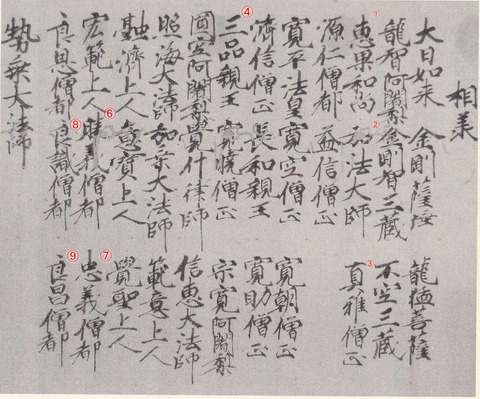 相承
大日如来 金剛薩埵 龍猛菩薩
龍智阿闍梨 金剛智三蔵 不空三蔵
1 恵果和尚 2 弘法大師 3 真雅僧正
源仁僧都 益信僧正
寛平法皇 寛空僧正 寛朝僧正
済信僧正 長和親王 寛助僧正
④ 三品親王 寛暁僧正 宗寛阿闍梨
阿闍梨 覺什律師 信恵大法師
照海大法師 大法師 範意上人
融済上人 意寶上人 覺聖上人
宏範上人 ⑥ 義僧都 ⑦ 忠義僧都
良恩僧都 ⑧ 良識僧都 ⑨ 良昌僧都
勢乗大法師